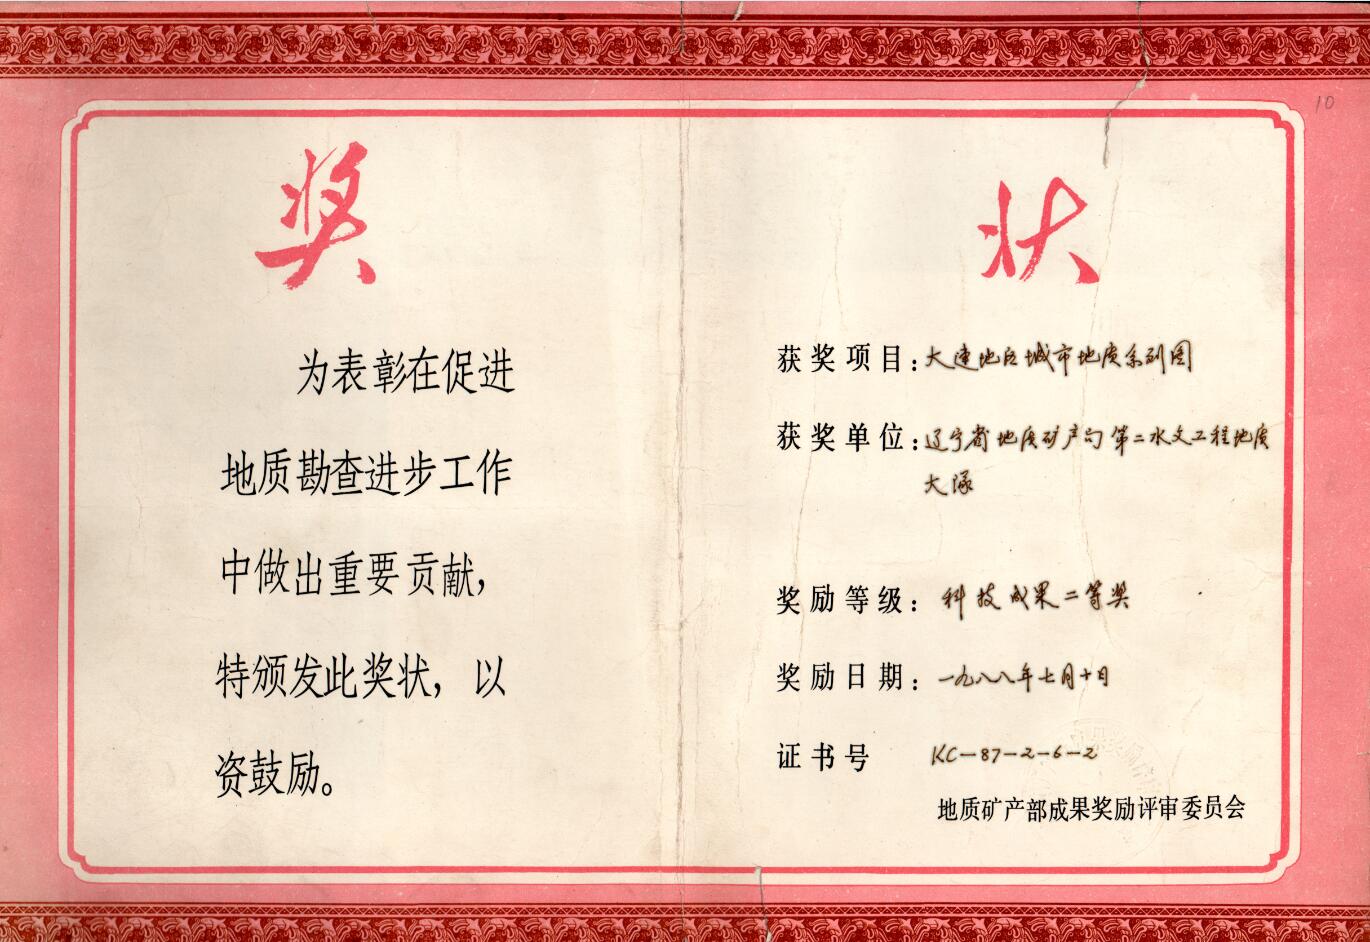 10
奖状
为表彰在促进
地质勘查进步工作
中做出重要贡献，
特颁发此奖状，以
资鼓励。
获奖项目：大连地区城市地质系列图
获奖单位：辽宁省地质矿产局第二水文工程地质
大队
奖励等级：科技成果二等奖
奖励日期：一九八八年七月十日
证书号 KC-87-2-6-2
地质矿产部成果奖励评审委员会